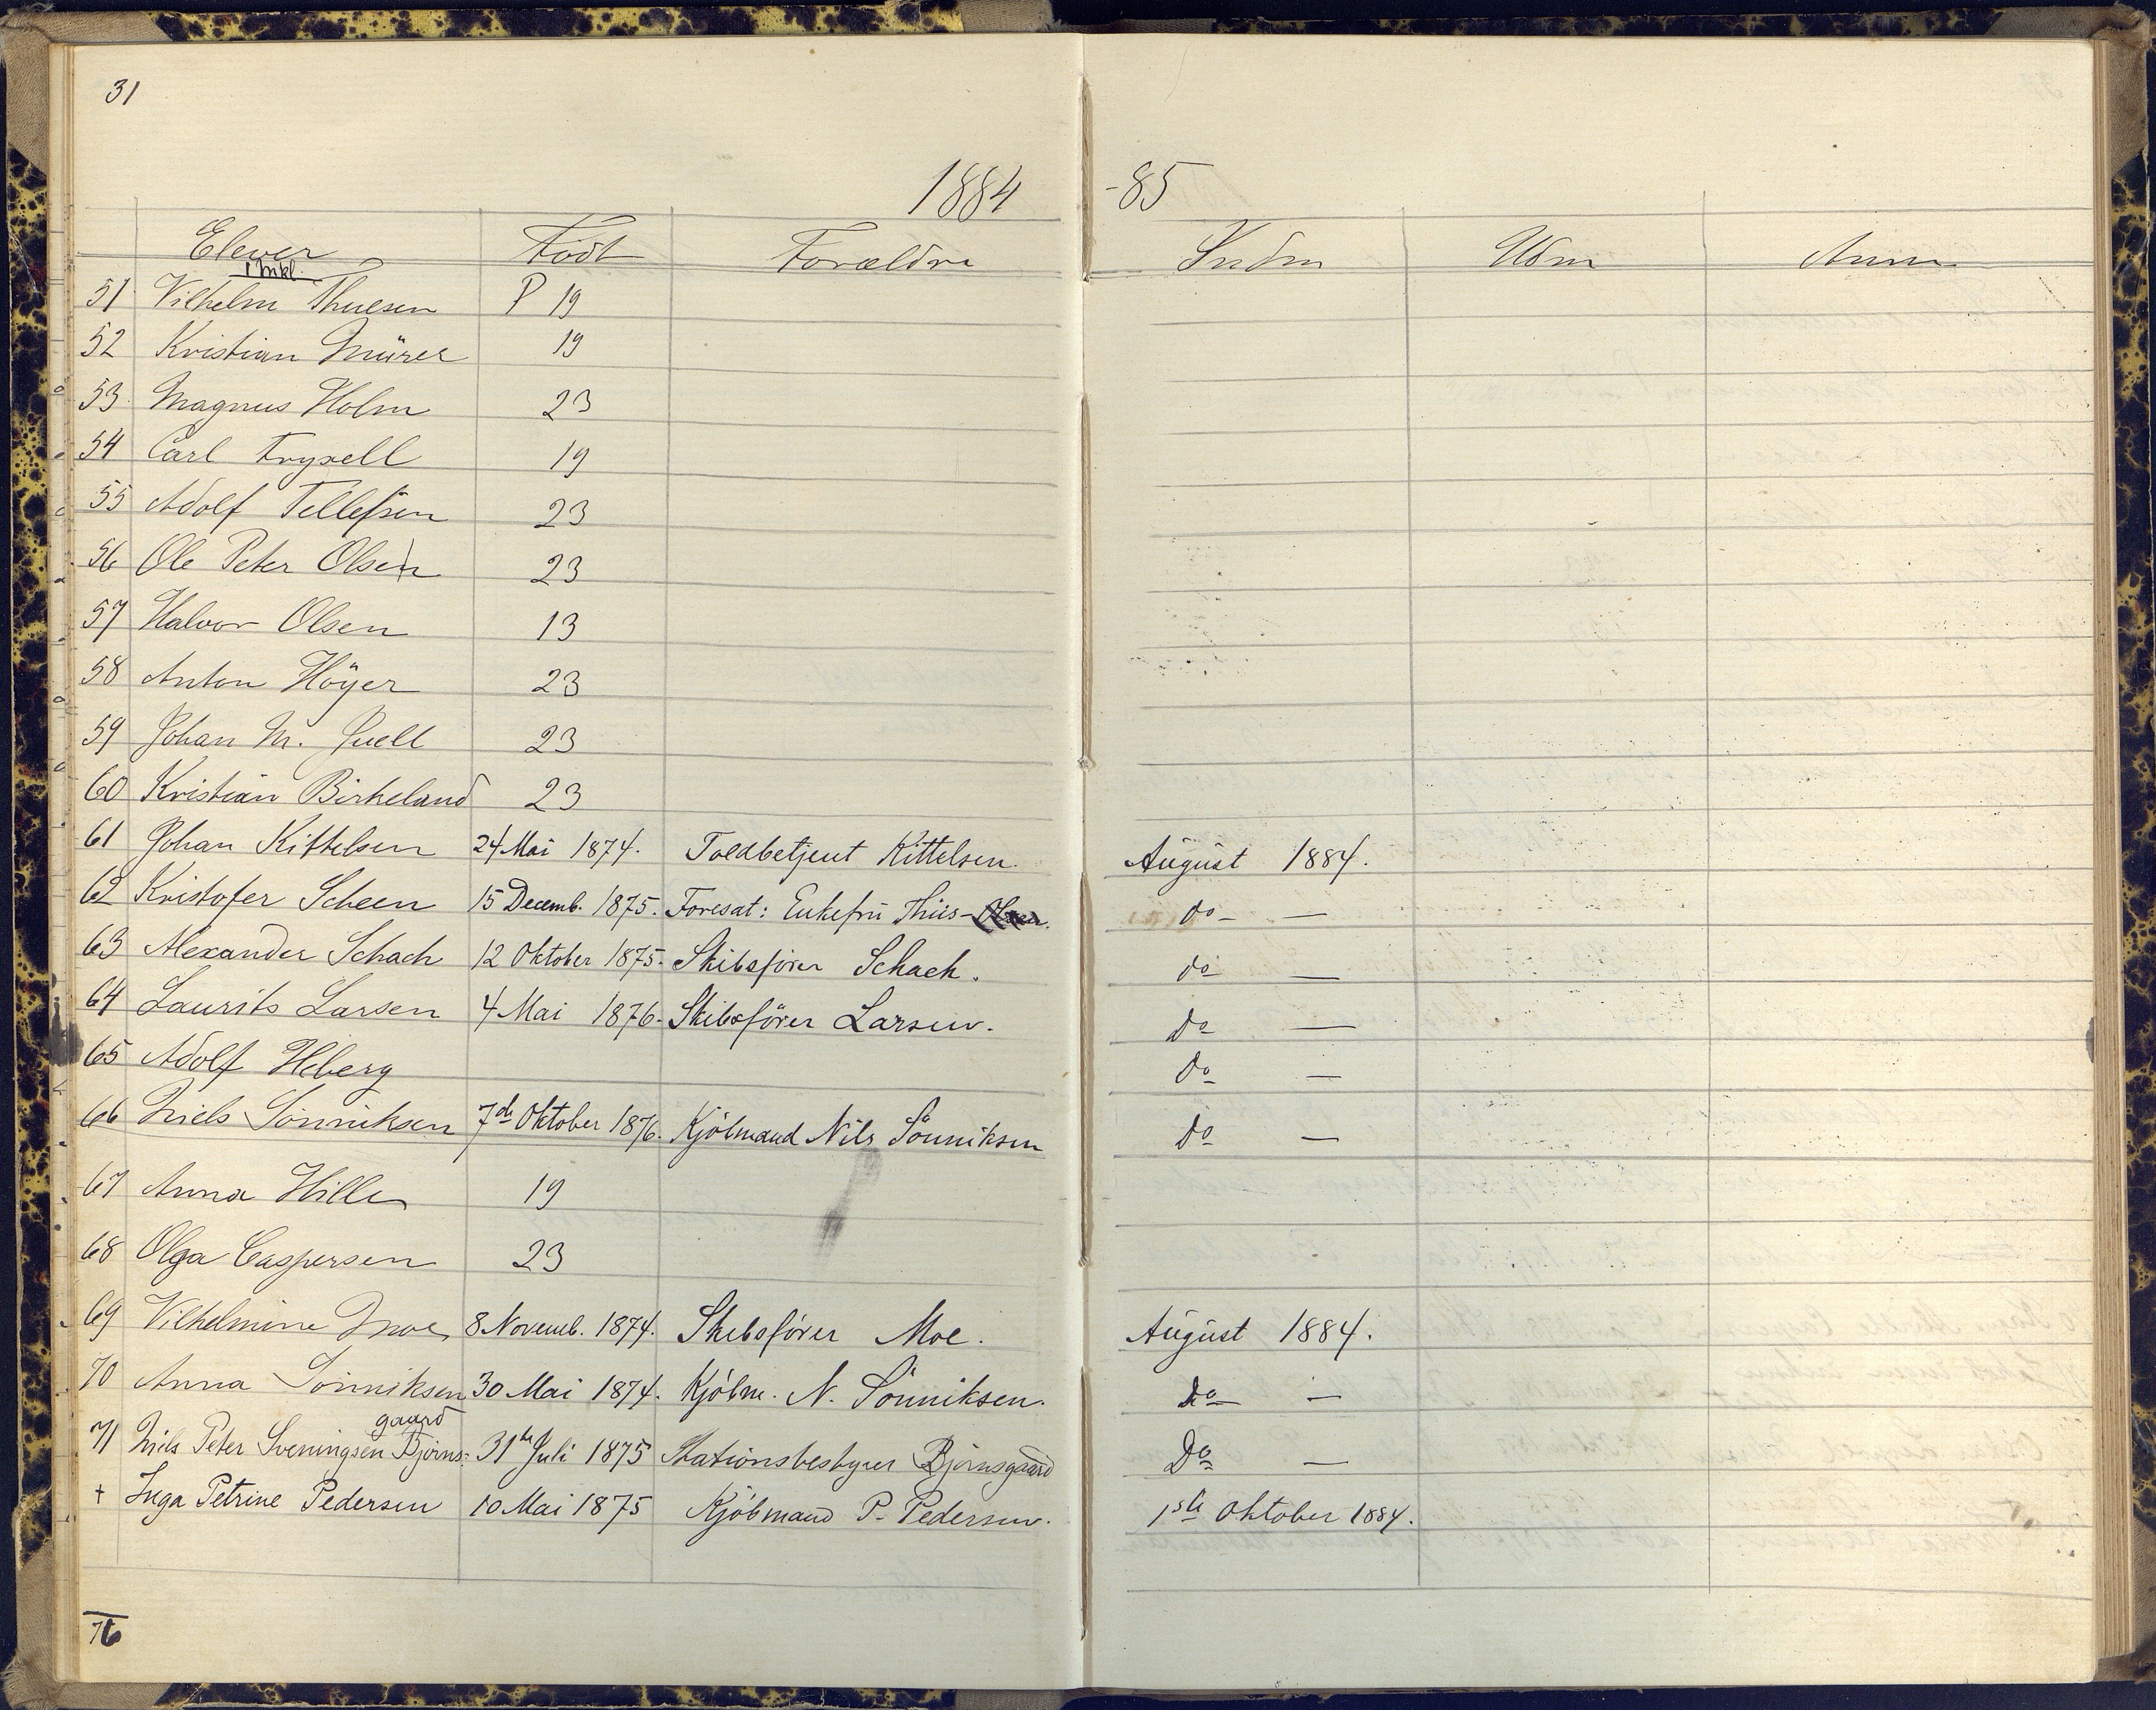 31
1884 -85
Elever Födt Forældre Indm Udm Anm
1 Mkl.
51 Vilhelm Thulsen P 19
52 Kristian Mürer 19
53 Magnus Holm 23
54 Carl Fryxell 19
55 Adolf Tellefsen 23
56 Ole Peter Olsen 23
57 Halvor Olsen 13
58 Anton Höyer 23
59 Johan M. Juell 23
60 Kristian Birkeland 23
61 Johan Kittelsen 24 Mai 1874. Toldbetjent Kittelsen. August 1884.
62 Kristofer Scheen 15 Decemb. 1875. Foresat: Enkefru Thiis- do —
63 Alexander Schach 12 Oktober 1875. Skibsförer Schach. do —
64 Laurits Larsen 4 Mai 1876. Skibsförer Larsen. do —
65 Adolf Heberg do —
66 Niels Sönniksen 7de Oktober 1876. Kjöbmand Nils Sönniksen do —
67 Anna Hille 19
68 Olga Caspersen 23
69 Vilhelmine Moe 8 Novemb. 1874. Skibsförer Moe. August 1884.
70 Anna Sönniksen 30 Mai 1874. Kjöbm. N. Sönniksen. do —
gaard
71 Niels Peter Sveningsen Björns- 31te Juli 1875 Stationsbestyrer Björnsgaard Do —
+ Inga Petrine Pedersen 10 Mai 1875 Kjöbmand P. Pedersen. 1ste Oktober 1884.
76